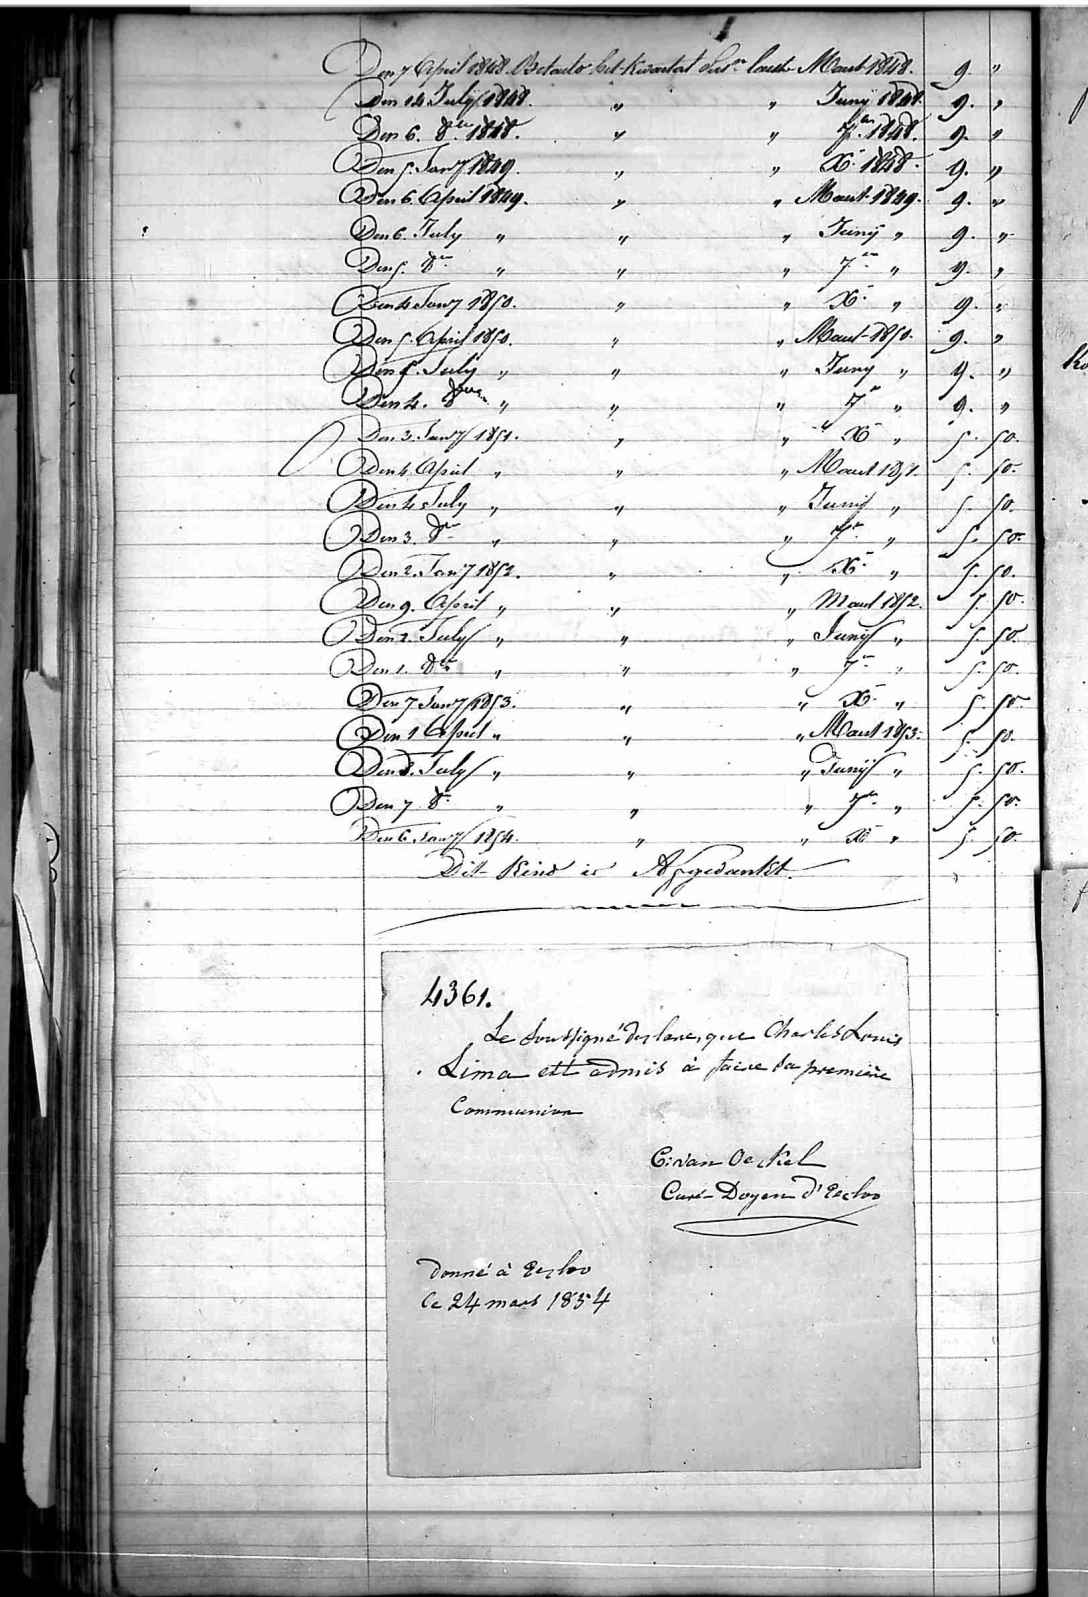 Den 7 April 1848. Betaelt het kwartal Maert 1848. 9. "
Den 14 July 1848. " " Juny 1848. 9. "
Den 6. 8er 1848. " " 7er 1848. 9. "
Den 5. Janry 1849. " " Xr 1848. 9. "
Den 6 April 1849. " " Maert 1849. 9. "
Den 6. July " " " Juny " 9. "
Den 5. 8er " " " 7er " 9. "
Den 4 Janry 1850. " " Xr " 9. "
Den 5. April 1850. " " Maert 1850. 9. "
Den 5. July " " " Juny " 9. "
Den 4. " " " 7er " 9. "
Den 3. Janry 1851. " " Xr " 5. 50.
Den 4 April " " " Maert 1851. 5. 50.
Den 4 July " " " Juny " 5. 50.
Den 3. 8er " " " 7er " 5. 50.
Den 2. Janry 1852. " " Xr " 5. 50.
Den 9. April " " " Maert 1852. 5. 50.
Den 2. July " " " Juny " 5. 50.
Den 1. 8er " " " 7er " 5. 50.
Den 7 Janry 1853. " " Xr " 5. 50
Den 1 April " " " Maert 1853. 5. 50.
Den 8. July " " " Juny " 5. 50.
Den 7 8r " " " 7er " 5. 50.
Den 6 Janry 1854. " " Xr " 5. 50.
Dit Kind is Afgedankt.
4361.
Le soussigné declare, que Charles Louis
Lima est admis à faire sa première
Communion
C: van Oeckel
Curé-Doyen d'Eecloo
Donné à Eecloo
le 24 mars 1854